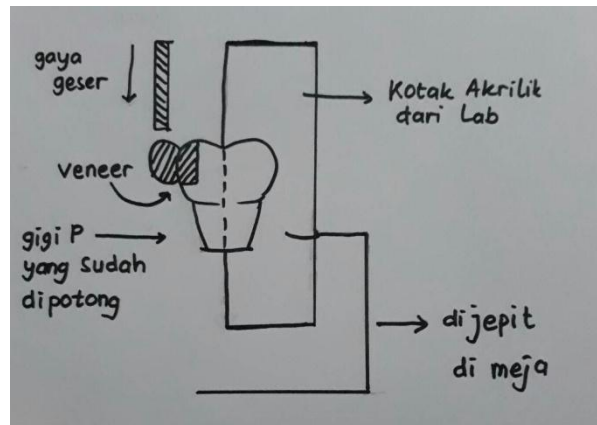 gaya
geser
Kotak Akrilik
dari Lab
veneer
gigi P
yang sudah
dipotong
dijepit
di meja